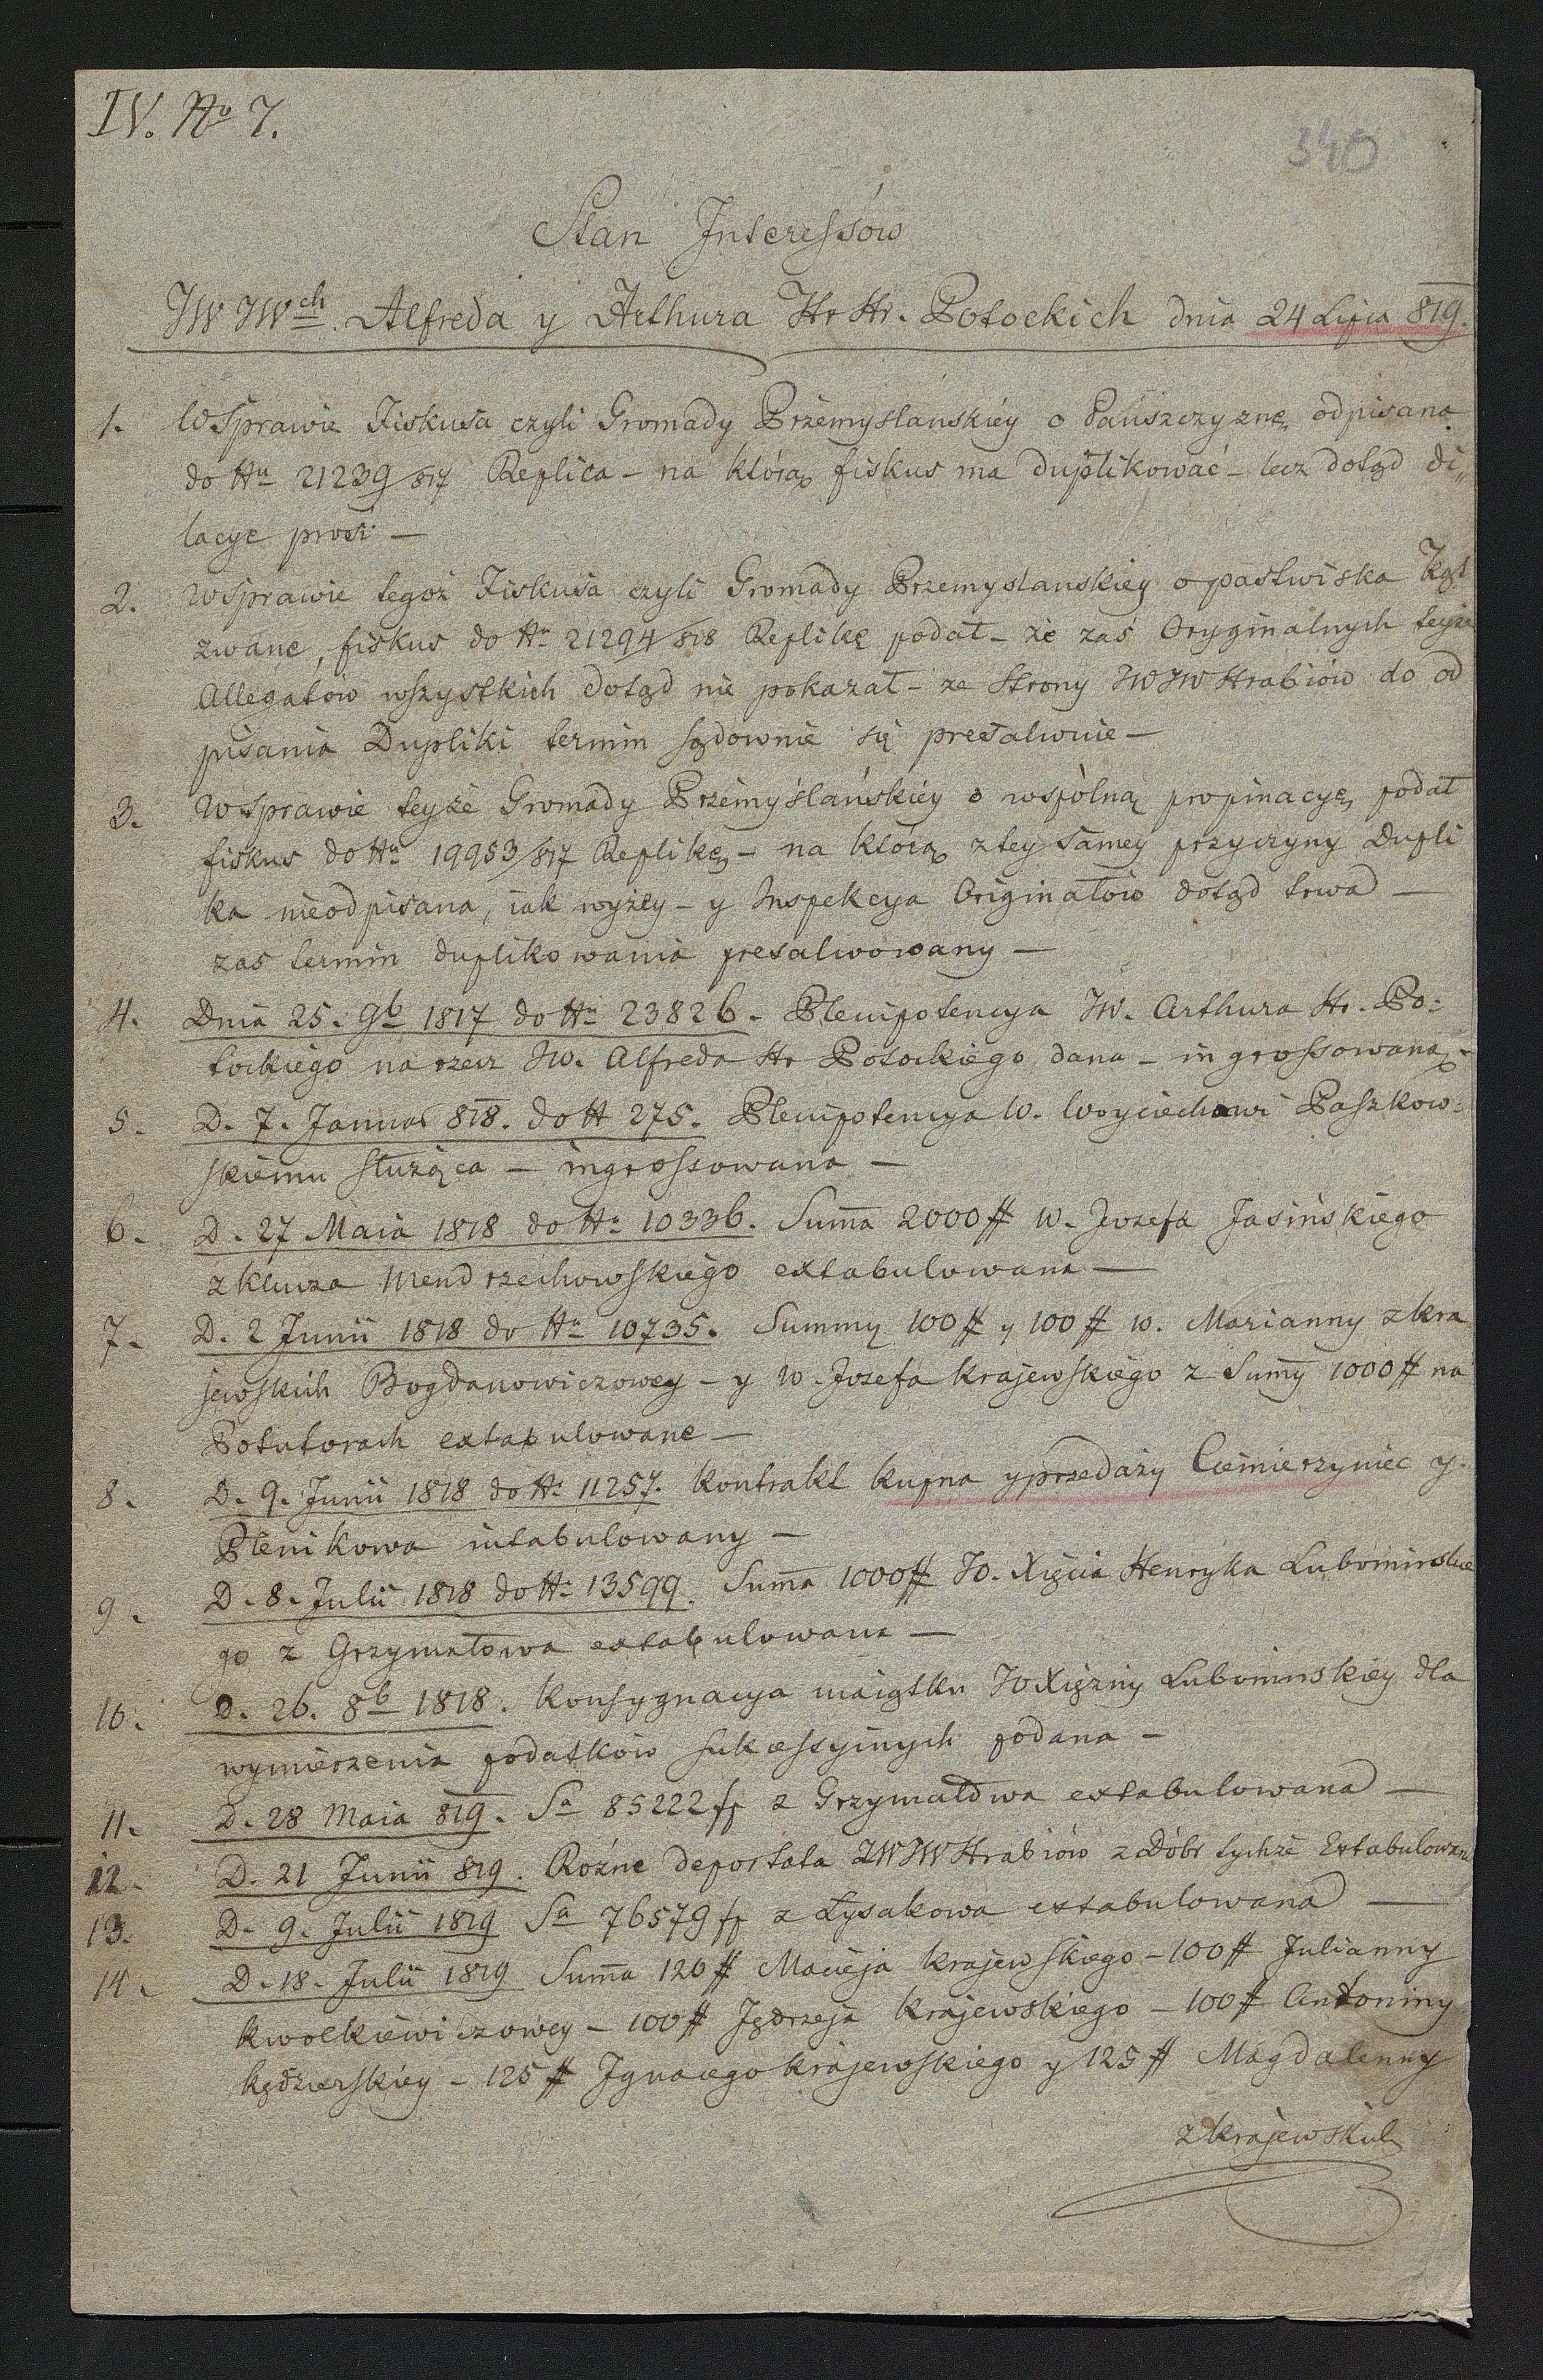 IV. No 7.
340
Stan Interessów
JWJWch. Alfreda y Arthura Hr Hr. Potockich dnia 24 Lipca 819.
1. W Sprawie Fiskusa czyli Gromady Przemyslańskiéy o Pańszczyznę odpisana
do Nu 21239/817 Replica – na którą fiskus ma duplikować – lecz dotąd di„
lacye prosi –
2. W Sprawie tegoż Fiskusa czyli Gromady Przemyslanskiey o pastwiska
zwane, fiskus do Nr 21294/818 Replikę podał – że zaś Oryginalnych teyże
Allegatów wszystkich dotąd nie pokazał – ze Strony JWJW Hrabiów do od
pisania Dupliki termin sądownie się presalwuie –
3. W Sprawie teyże Gromady Przemyślańskiéy o wspólną propinacyę podał
fiskus do Nu 19953/817 Replikę – na którą z tey samey przyczyny Dupli
ka nieodpisana, iak wyżéy – y Inspekcya Originałów dotąd trwa –
zas termin duplikowania presalwowany –
4. Dnia 25. 9b 1817 do Nr 23826. Plenipotencya JW. Arthura Hr. Po:
tockiego na rzecz JW. Alfreda Hr Potockiego dana – ingrossowana.
5. D. 7. Januar 818. do N 275. Plenipotencya W. Woyciechowi Paszkow:
skiemu służąca – ingrossowana –
6. D. 27 Maia 1818 do Nr 10336. Suma 2000 # W. Jozefa Jasińskiego
z klucza Mendrzechowskiego extabulowana –
7. D. 2 Junii 1818 do Nr 10735. Summy 100 # y 100 # W. Marianny z Kra
jewskich Bogdanowiczowey – y W. Jozefa Krajewskiego z Sumy 1000 # na
Potutorach extabulowane –
8. D. 9. Junii 1818 do Nr 11257. Kontrakt kupna y przedaży Ciemierzyniec y
Plenikowa intabulowany –
9. D. 8. Julii 1818 do Nr 13599. Suma 1000 # JO. Xięcia Henryka Lubomirskie
go z Grzymałowa extabulowana –
10. D. 26. 8b 1818. Konsygnacya maiątku JO Xiężny Lubomirskiey dla
wymierzenia podatków sukcessyinych podana –
11. D. 28 Maia 819. Sa 85222 fr z Grzymałowa extabulowana –
12. D. 21 Junii 819. Rożne deportata JWJW Hrabiów z Dóbr tychże Extabulowane
13. D. 9. Julii 1819 Sa 76579 fr z Łysakowa extabulowana –
14. D. 18. Julii 1819 Suma 120 # Macieja Krajewskiego – 100 # Julianny
Kwolkiewiczowey – 100 # Jędrzeja Krajewskiego – 100 # Antoniny
Kędzierskiey – 125 # Ignacego Krajewskiego y 125 # Magdalenny
z Krajewskich